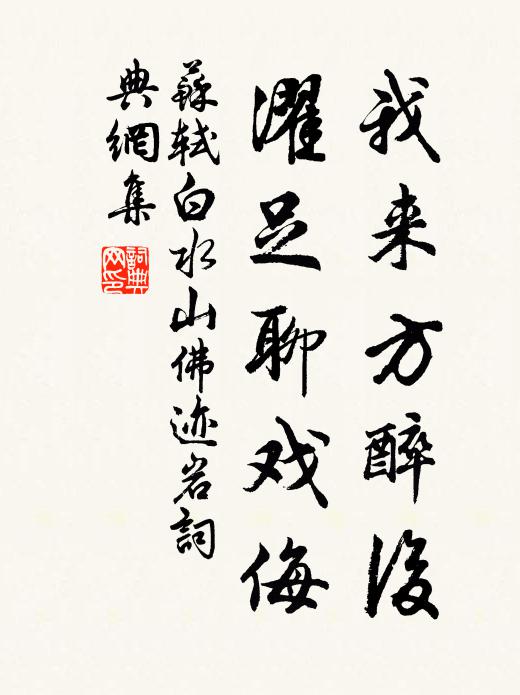 我来方醉後
濯足聊戏侮
蘇軾白水山佛迹岩詞
典網集
詞典
网印